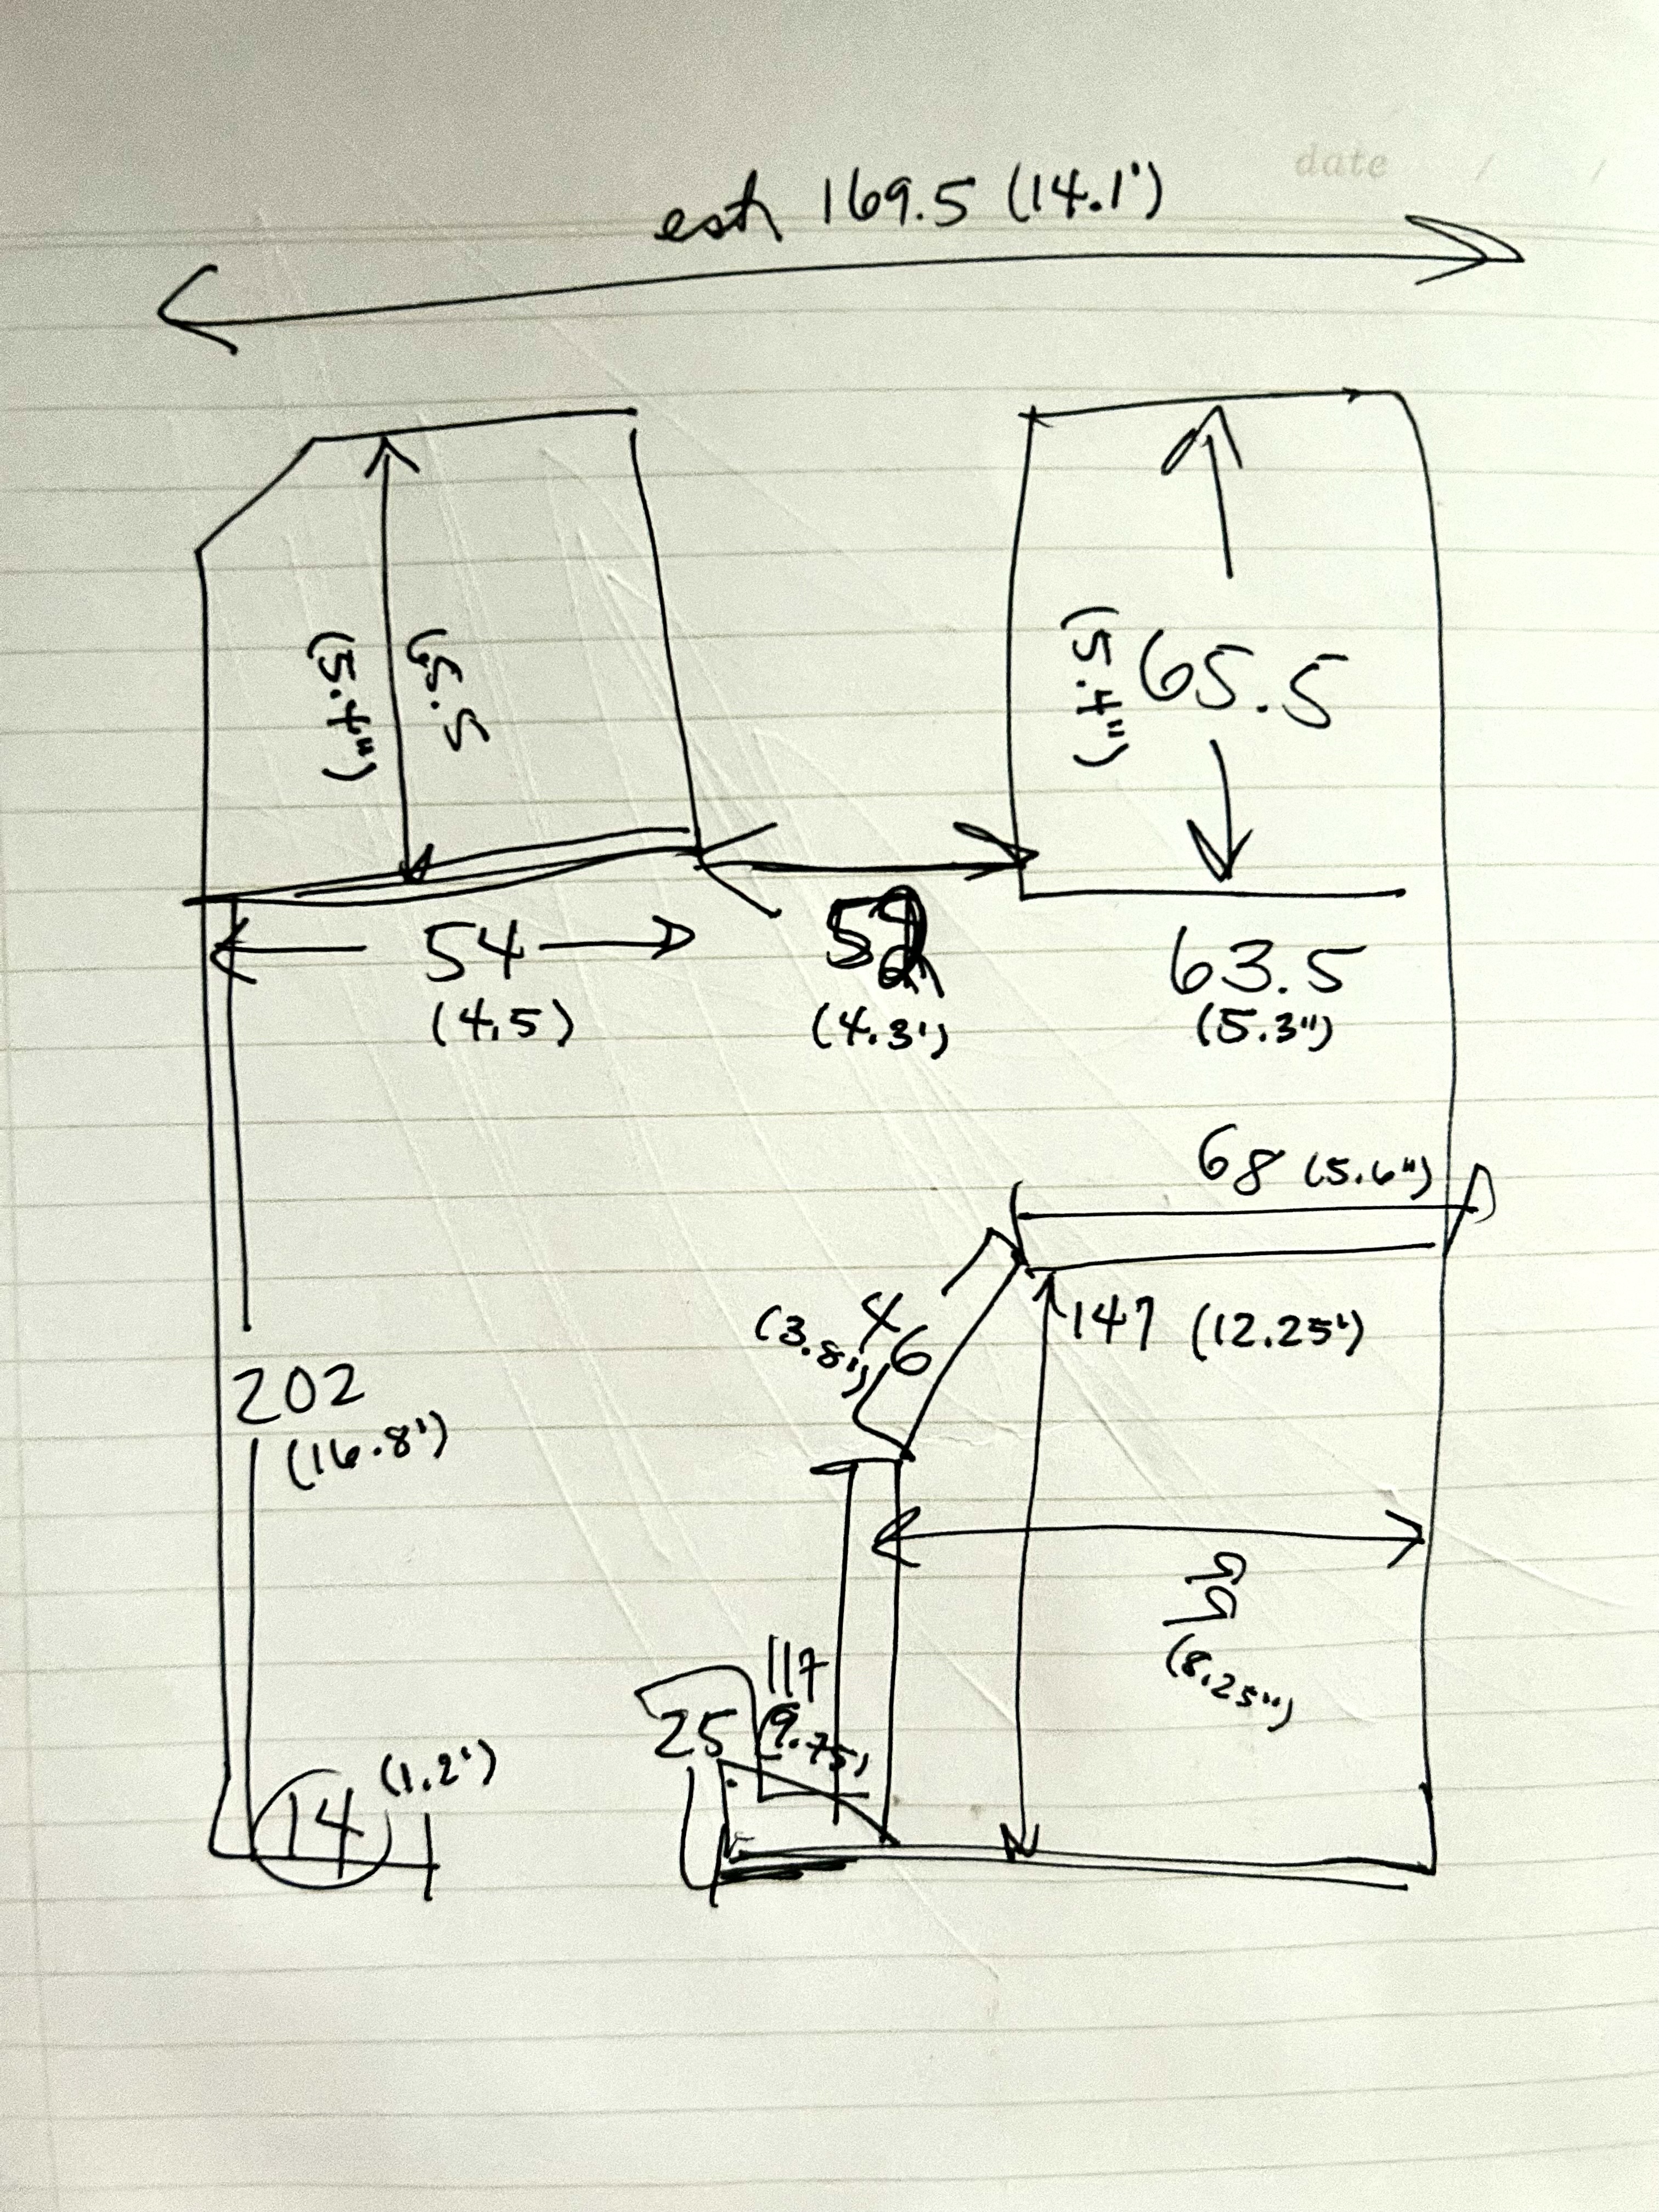 date / /
est 169.5 (14.1')
65.5
(5.4")
65.5
(5.4")
54
(4.5)
52
(4.3')
63.5
(5.3")
68 (5.6")
46
(3.8')
147 (12.25')
202
(16.8')
99
(8.25")
117
9.75'
25
14 (1.2')